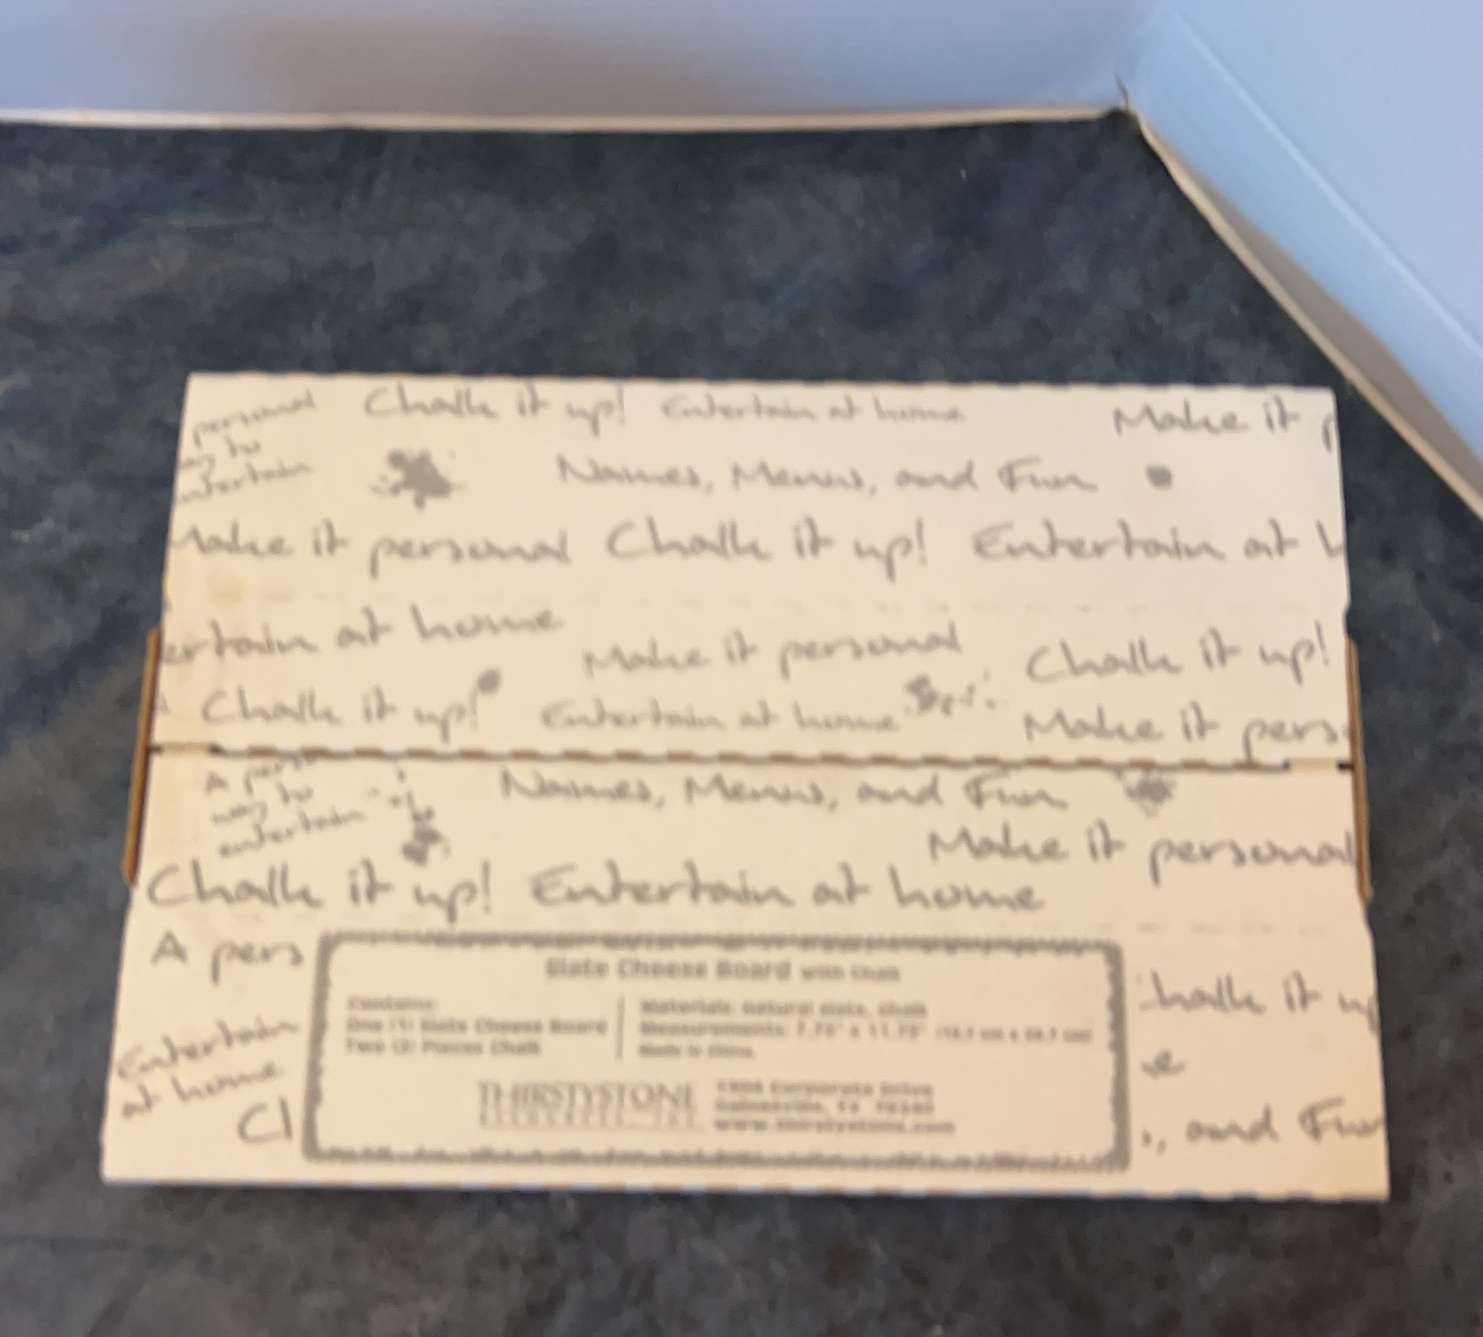 personal Chalk it up! Entertain at home Make it p
way to
entertain
Names, Menus, and Fun
Make it personal Chalk it up! Entertain at h
ertain at home Make it personal Chalk it up!
Chalk it up! Entertain at home Make it pers
A pers
way to
entertain
Names, Menus, and Fun
Make it personal
Chalk it up! Entertain at home
A pers
Entertain
at home
Cl
Slate Cheese Board with Chalk
Contains:
One (1) Slate Cheese Board
Two (2) Pieces Chalk
Materials: natural slate, chalk
Measurements: 7.75" x 11.75"
Made in China
THIRSTYSTONE
Corporate Drive
Gainesville, TX
www.thirstystone.com
halk it up
e
, and Fun